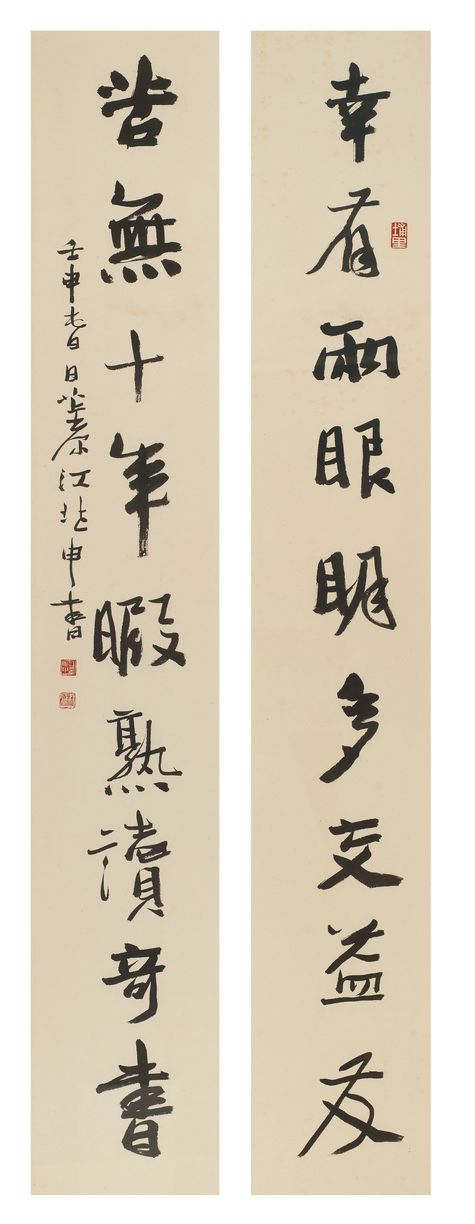 幸有兩眼明多交益友
埔里
苦無十年暇熟讀奇書
壬申春日茮原江兆申書